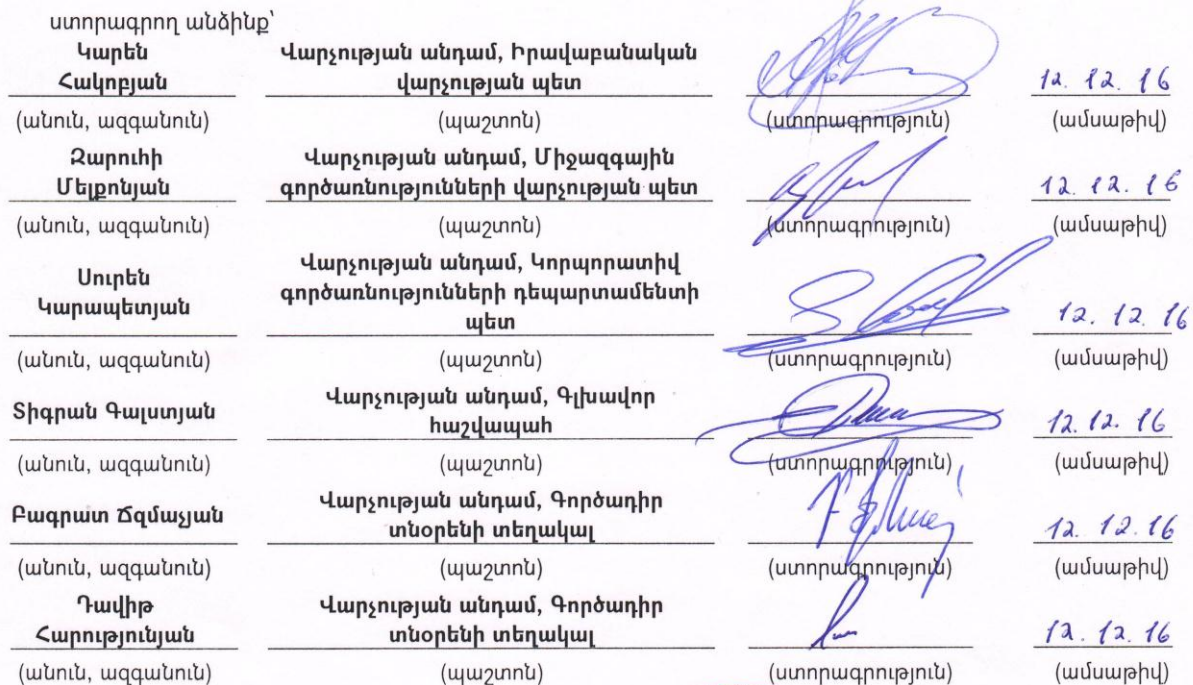 ստորագրող անձինք՝
Կարեն Վարչության անդամ, Իրավաբանական
Հակոբյան վարչության պետ 12. 12. 16
(անուն, ազգանուն) (պաշտոն) (ստորագրություն) (ամսաթիվ)
Զարուհի Վարչության անդամ, Միջազգային
Մելքոնյան գործառնությունների վարչության պետ 12. 12. 16
(անուն, ազգանուն) (պաշտոն) (ստորագրություն) (ամսաթիվ)
Սուրեն Վարչության անդամ, Կորպորատիվ
Կարապետյան գործառնությունների դեպարտամենտի
պետ 12. 12. 16
(անուն, ազգանուն) (պաշտոն) (ստորագրություն) (ամսաթիվ)
Տիգրան Գալստյան Վարչության անդամ, Գլխավոր
հաշվապահ 12. 12. 16
(անուն, ազգանուն) (պաշտոն) (ստորագրություն) (ամսաթիվ)
Բագրատ Ճզմաչյան Վարչության անդամ, Գործադիր
տնօրենի տեղակալ 12. 12. 16
(անուն, ազգանուն) (պաշտոն) (ստորագրություն) (ամսաթիվ)
Դավիթ Վարչության անդամ, Գործադիր
Հարությունյան տնօրենի տեղակալ 12. 12. 16
(անուն, ազգանուն) (պաշտոն) (ստորագրություն) (ամսաթիվ)